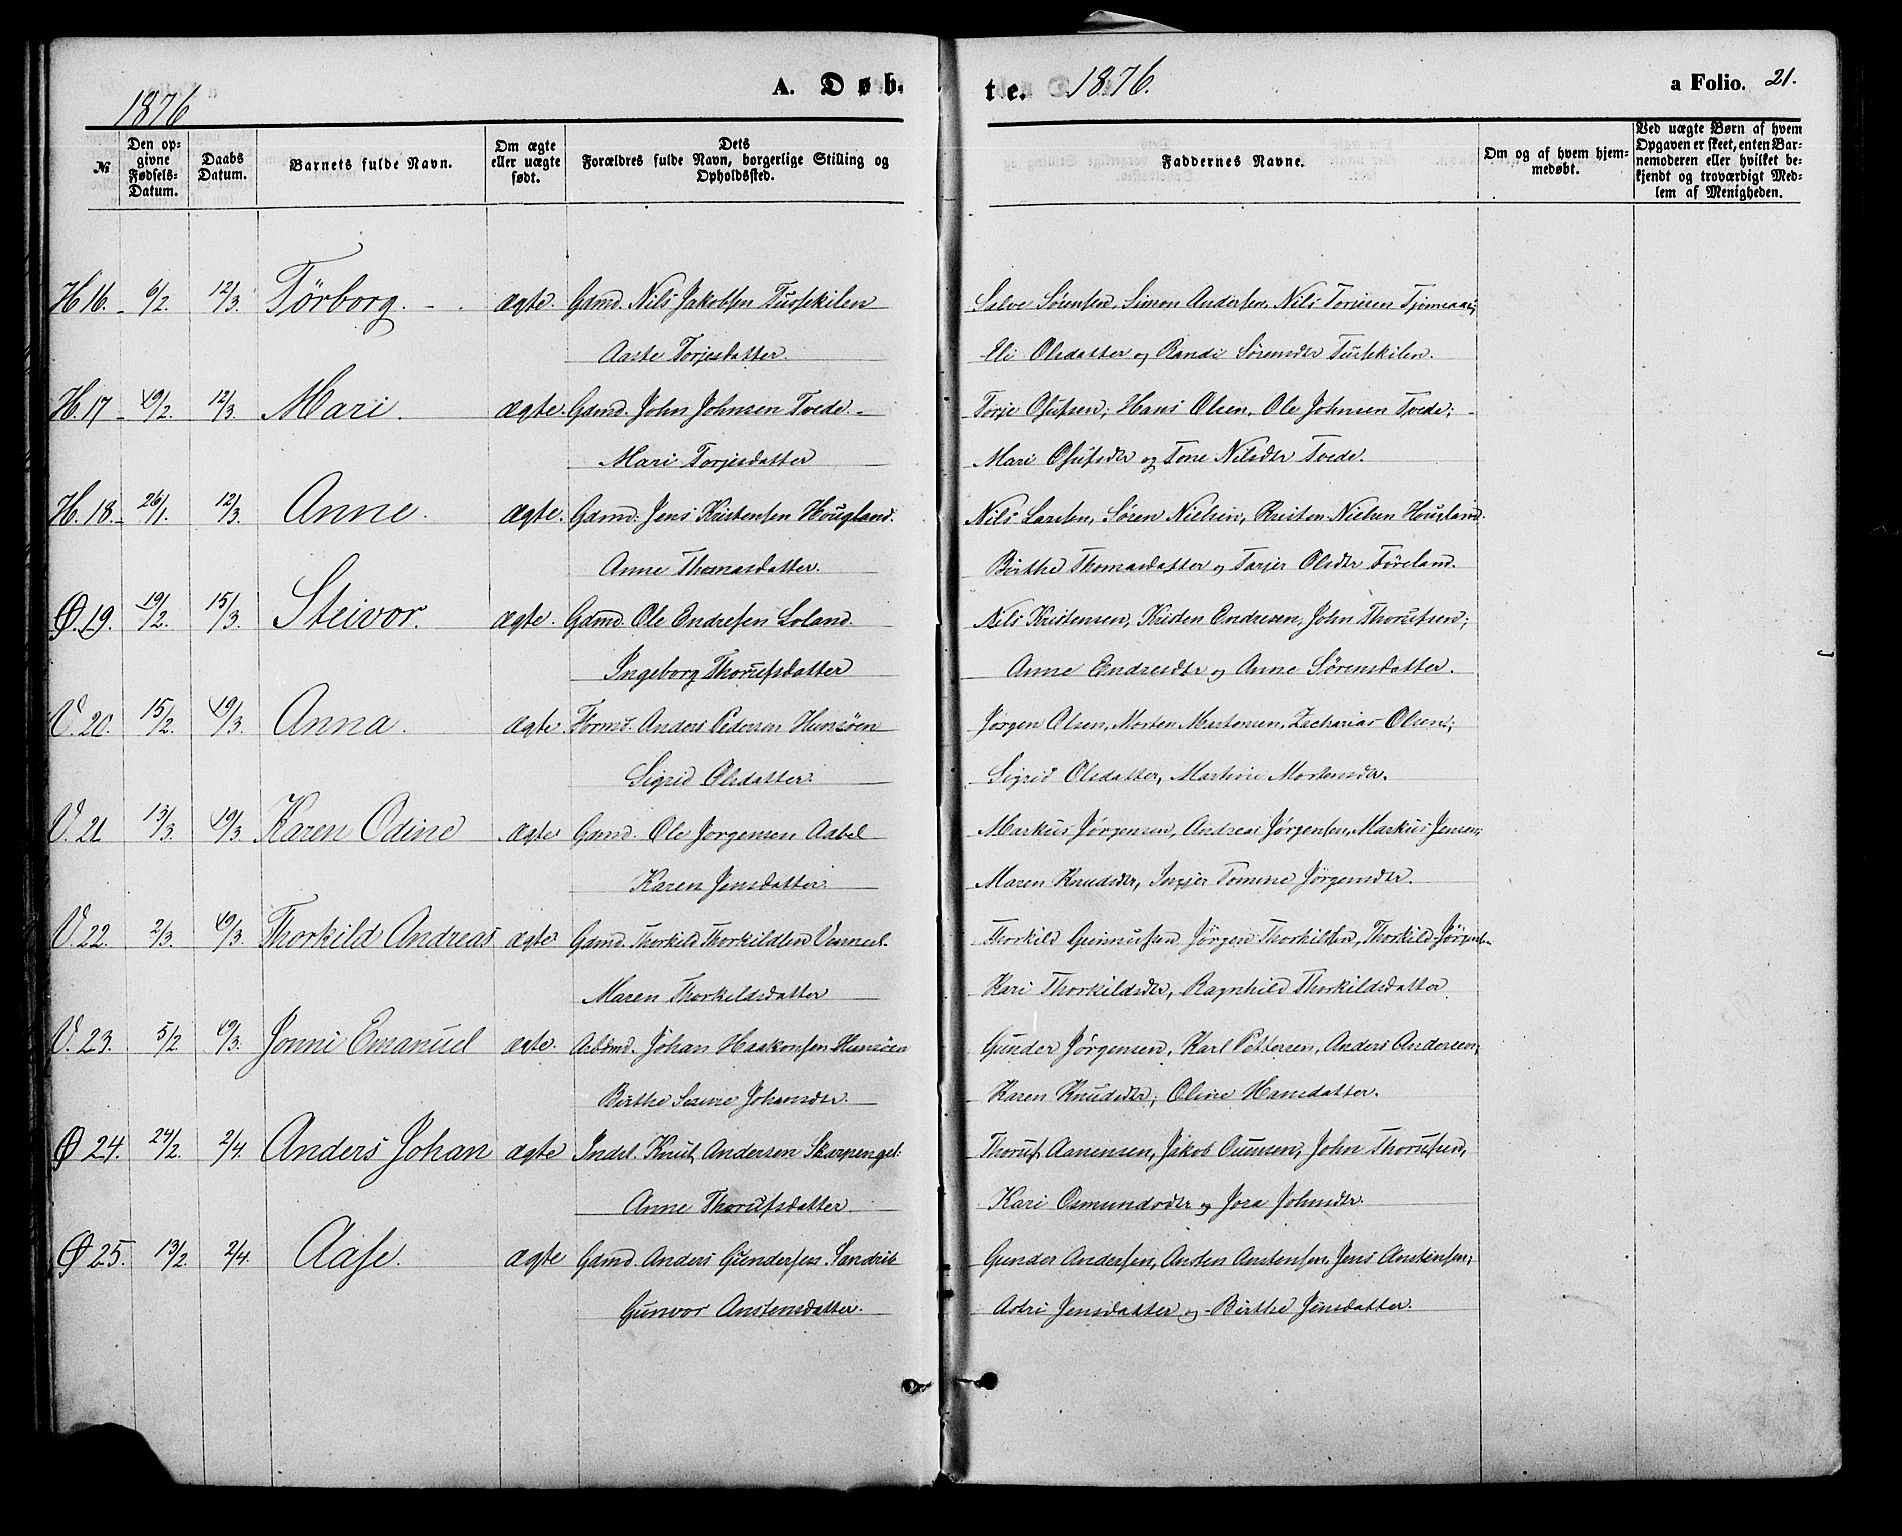 1876 A. Døb- te. 1876. a Folio. 21.
№ Den opgivne Fødsels-Datum. Daabs Datum. Barnets fulde Navn. Om ægte eller uægte født. Dets Forældres fulde Navn, borgerlige Stilling og Opholdssted. Faddernes Navne. Om og af hvem hjemmedøbt. Ved uægte Børn af hvem Opgaven er skeet, enten Barnemoderen eller hvilket bekjendt og troværdigt Medlem af Menigheden.
H 16. 6/2. 12/3. Törborg. ægte. Gamd. Nils Jakobsen Salve Sörensen, Simon Andersen, Nils
Aaste Torjesdatter. Eli Olsdatter og Randi Sörensdtr
H. 17 19/2. 12/3. Mari. ægte. Gamd. John Johnsen Tvede. Torje Osufsen; Hans Olsen, Ole Johnsen Tvede;
Mari Torjesdatter Mari Osufsdtr og Tone Nilsdtr Tvede.
H. 18. 26/1. 12/3. Anne. ægte. Gamd. Jens Kristensen Hougland. Nils Larsen, Sören Nielsen, Kristen Nielsen Hougland.
Anne Thomasdatter. Birthe Thomasdatter og Torjer Olsdtr Föreland.
Ø. 19. 19/2. 15/3. Steivor. ægte. Gamd. Ole Endresen Loland. Nils Kristensen, Kristen Endresen, John Thorufsen;
Ingeborg Thorufsdatter Anne Endresdtr og Anne Sörensdatter.
V. 20. 15/2. 19/3. Anna. ægte. Anders Pedersen Hunsöen Jörgen Olsen, Morten Mortensen, Zacharias Olsen;
Sigrid Olsdatter. Sigrid Olsdatter, Martine Mortensdtr.
V. 21 13/3. 19/3. Karen Odine ægte Gamd. Ole Jorgensen Aabel Markus Jörgensen, Andreas Jörgensen, Markus Jensen;
Karen Jensdatter. Maren Knudsdtr, Tomine Jörgensdtr.
V. 22. 2/3. 19/3. Thorkild Andreas ægte Gamd. Thorkild Thorkildsen Vennesl. Thorkild Gunnufsen Jörgen Thorkildsen, Thorkild Jörgens.
Maren Thorkildsdatter Kari Thorkildsdtr, Ragnhild Thorkildsdatter
V. 23. 5/2 19/3. Jonni Emanuel ægte. Arbdmd. Johan Haakonsen Hunsöen Gunder Jörgensen, Karl Pettersen, Anders Andersen;
Birthe Serine Johansdtr. Karen Knudsdtr, Oline Hansdatter.
Ø 24. 24/2. 2/4. Anders Johan ægte Indst. Knut Andersen Skarpengel. Thoruf Aanensen, Jakob Ouensen, John Thorufsen,
Anne Thorufsdatter Kari Osmundsdtr og Jora Johnsdtr.
Ø 25. 13/2. 2/4. Aase. ægte Gamd. Anders Gundersen Sandrib Gunder Andersen, Ansten Anstensen, Jens Anstensen,
Gunvor Anstensdatter. Astri Jensdatter og Birthe Jensdatter.